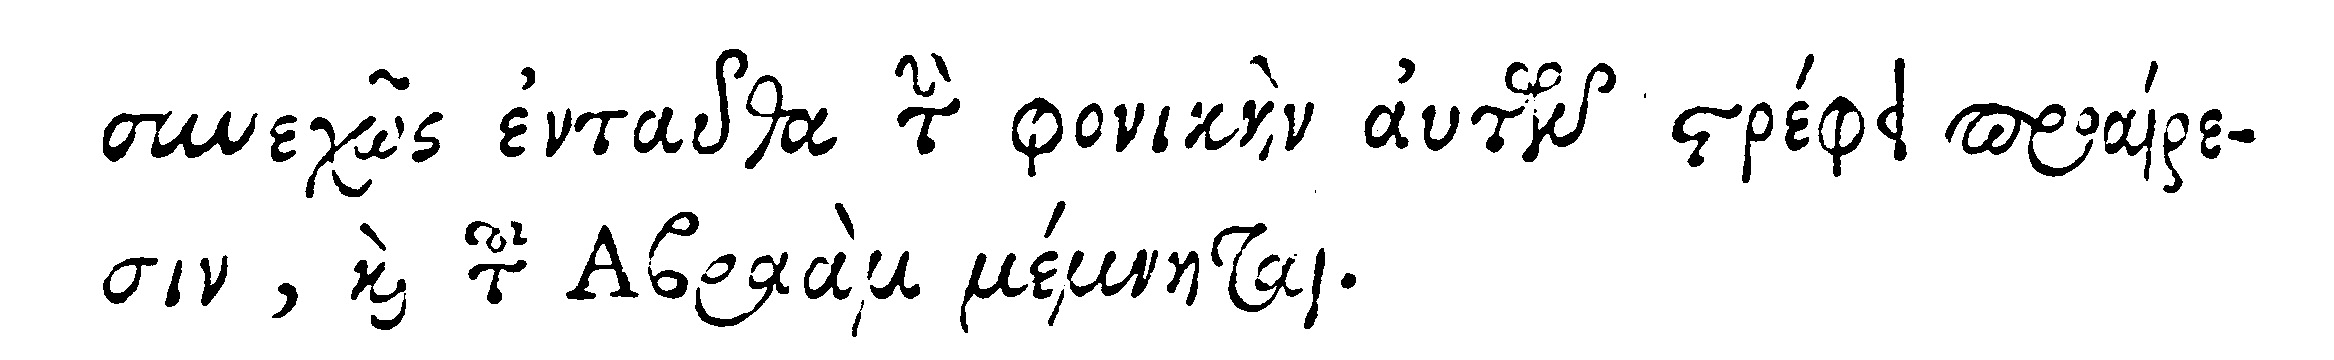 συνεχῶς ἐνταῦθα τὴν φονικὴν ἀυτῶν στρέφει προαίρε-
σιν, καὶ τοῦ Αβραὰμ μέμνηται.